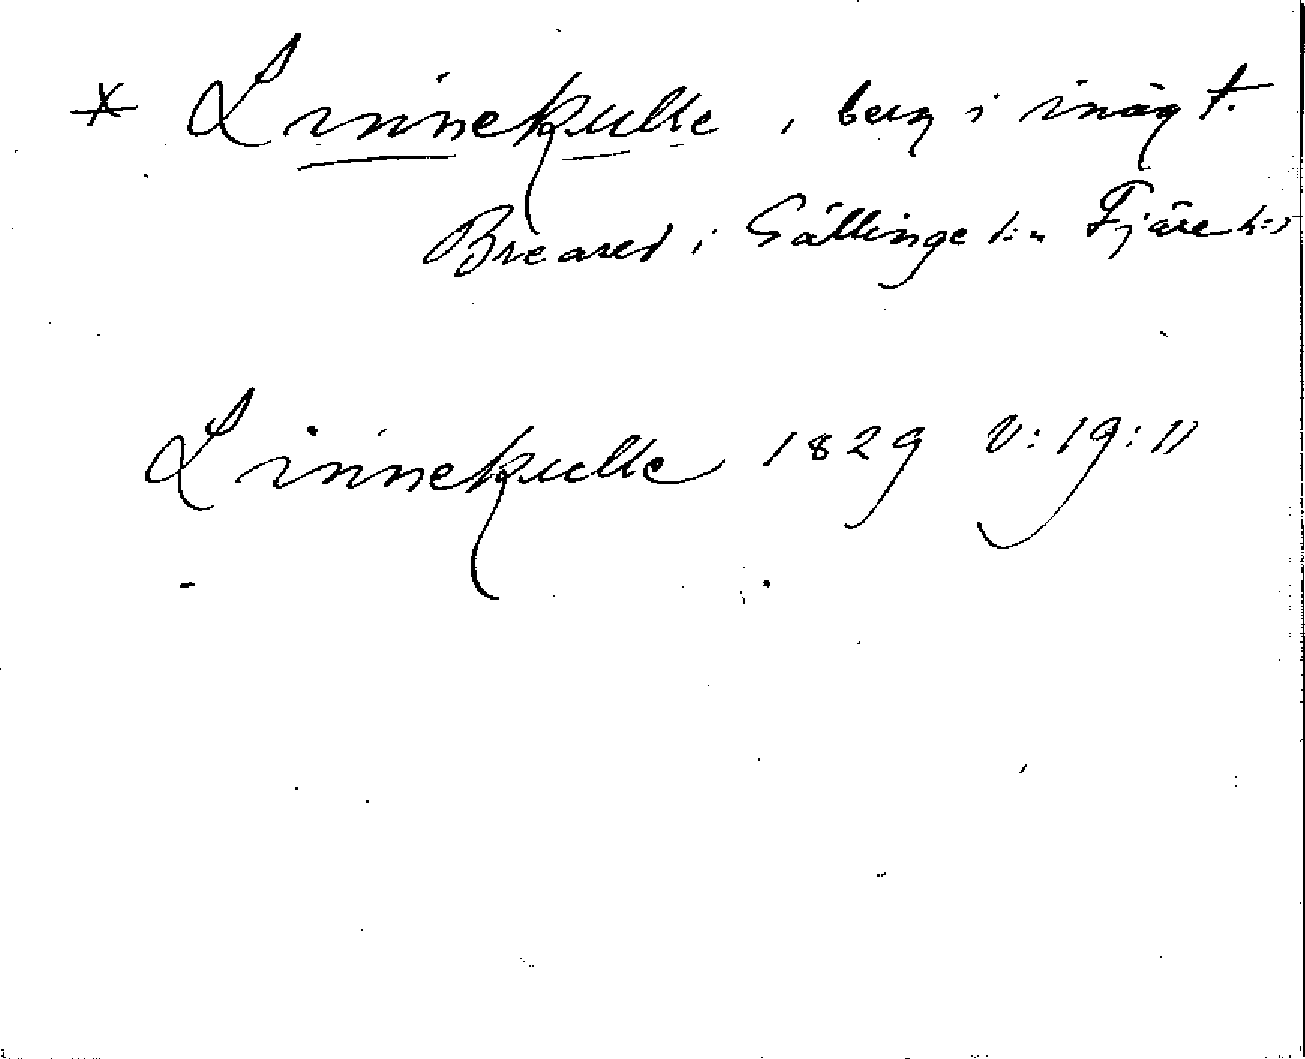 * Linnekulle, berg i inägt.
Breared i Gällinge s:n Fjäre h:d
Linnekulle 1829 V:19:11